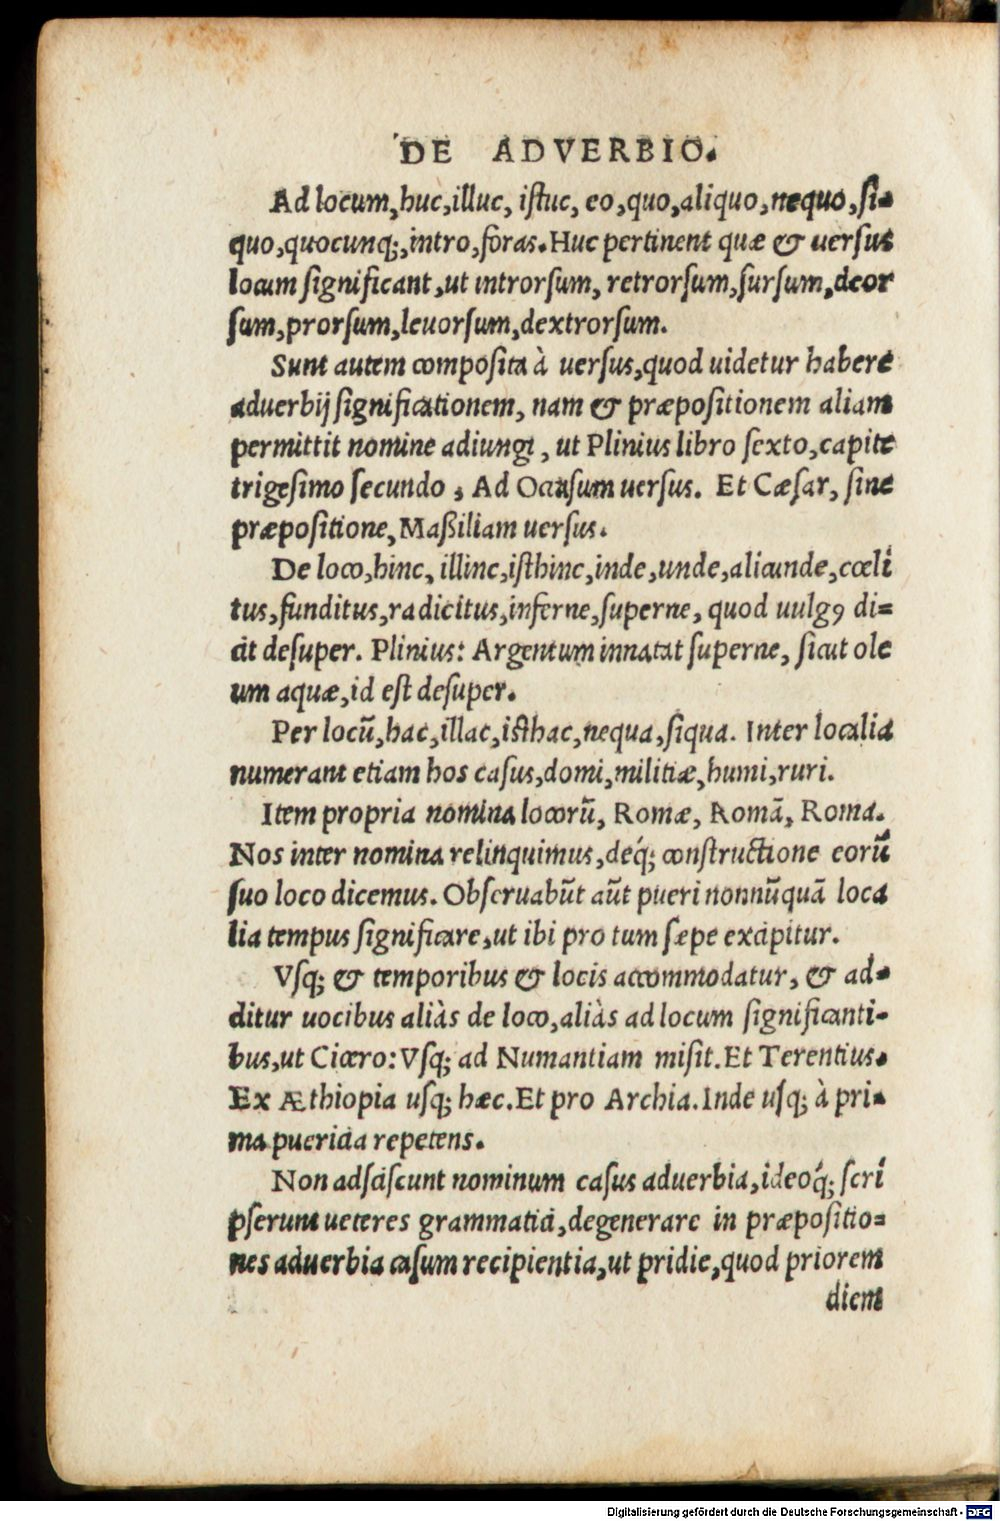 DE ADVERBIO.
Ad locum, huc, illuc, istuc, eo, quo, aliquo, nequo, si-
quo, quocunq;, intro, foras. Huc pertinent quæ & uersus
locum significant, ut introrsum, retrorsum, sursum, deor
sum, prorsum, leuorsum, dextrorsum.
Sunt autem composita à uersus, quod uidetur habere
aduerbij significationem, nam & præpositionem aliam
permittit nomine adiungi, ut Plinius libro sexto, capite
trigesimo secundo, Ad Occasum uersus. Et Cæsar, sine
præpositione, Maßiliam uersus.
De loco, hinc, illinc, isthinc, inde, unde, alicunde, cœli
tus, funditus, radicitus, inferne, superne, quod uulgꝯ di=
cit desuper. Plinius: Argentum innatat superne, sicut ole
um aquæ, id est desuper.
Per locũ, hac, illac, isthac, nequa, siqua. Inter localia
numerant etiam hos casus, domi, militiæ, humi, ruri.
Item propria nomina locorũ, Romæ, Romã, Roma.
Nos inter nomina relinquimus, deq́; constructione eorũ
suo loco dicemus. Obseruabũt aũt pueri nonnũquã loca
lia tempus significare, ut ibi pro tum sæpe excipitur.
Vsq; & temporibus & locis accommodatur, & ad-
ditur uocibus aliàs de loco, aliàs ad locum significanti-
bus, ut Cicero: Vsq; ad Numantiam misit. Et Terentius.
Ex Æthiopia usq; hæc. Et pro Archia. Inde usq; à pri-
ma puericia repetens.
Non adsciscunt nominum casus aduerbia, ideoq́; scri
pserunt ueteres grammatici, degenerare in præpositio=
nes aduerbia casum recipientia, ut pridie, quod priorem
diem
Digitalisierung gefördert durch die Deutsche Forschungsgemeinschaft - DFG